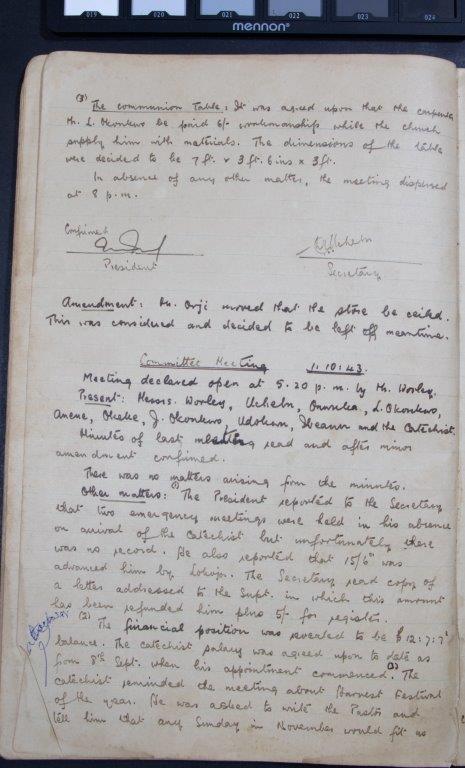 019 020 021 022 023 024
mennon
(3) The communion Table: It was agreed upon that the carpenter
Mr. L. Okonkwo be paid 6/- workmanship while the church
supply him with materials. The dimensions of the table
were decided to be 7 ft. x 3 ft. 6 ins x 3 ft.
In absence of any other matter, the meeting dispersed
at 8 p.m.
Confirmed
President
Secretary
Amendment: Mr. Orji moved that the store be ceiled.
This was considered and decided to be left off meantime.
Committee Meeting 1:10:43.
Meeting declared open at 5.20 p.m. by Mr. Worley.
Present: Messrs. Worley, Uchebn, Onwuka, L. Okonkwo,
Anene, Okeke, J. Okonkwo, Udokwu, Ibeanu and the Catechist.
Minutes of last meeting read and after minor
amendment confirmed.
There was no matters arising from the minutes.
Other matters: (1) The President reported to the Secretary
that two emergency meetings were held in his absence
on arrival of the Catechist but unfortunately there
was no record. He also reported that 15/6d was
advanced him by Lokoja. The Secretary read copy of
a letter addressed to the Supt. in which this amount
has been refunded him plus 5/- for register.
(2) The financial position was revealed to be £12:7:7d
balance. The catechist salary was agreed upon to date as
from 8th Sept. when his appointment commenced. (3) The
catechist reminded the meeting about Harvest Festival
of the year. He was asked to write the Pastor and
tell him that any Sunday in November would fit us